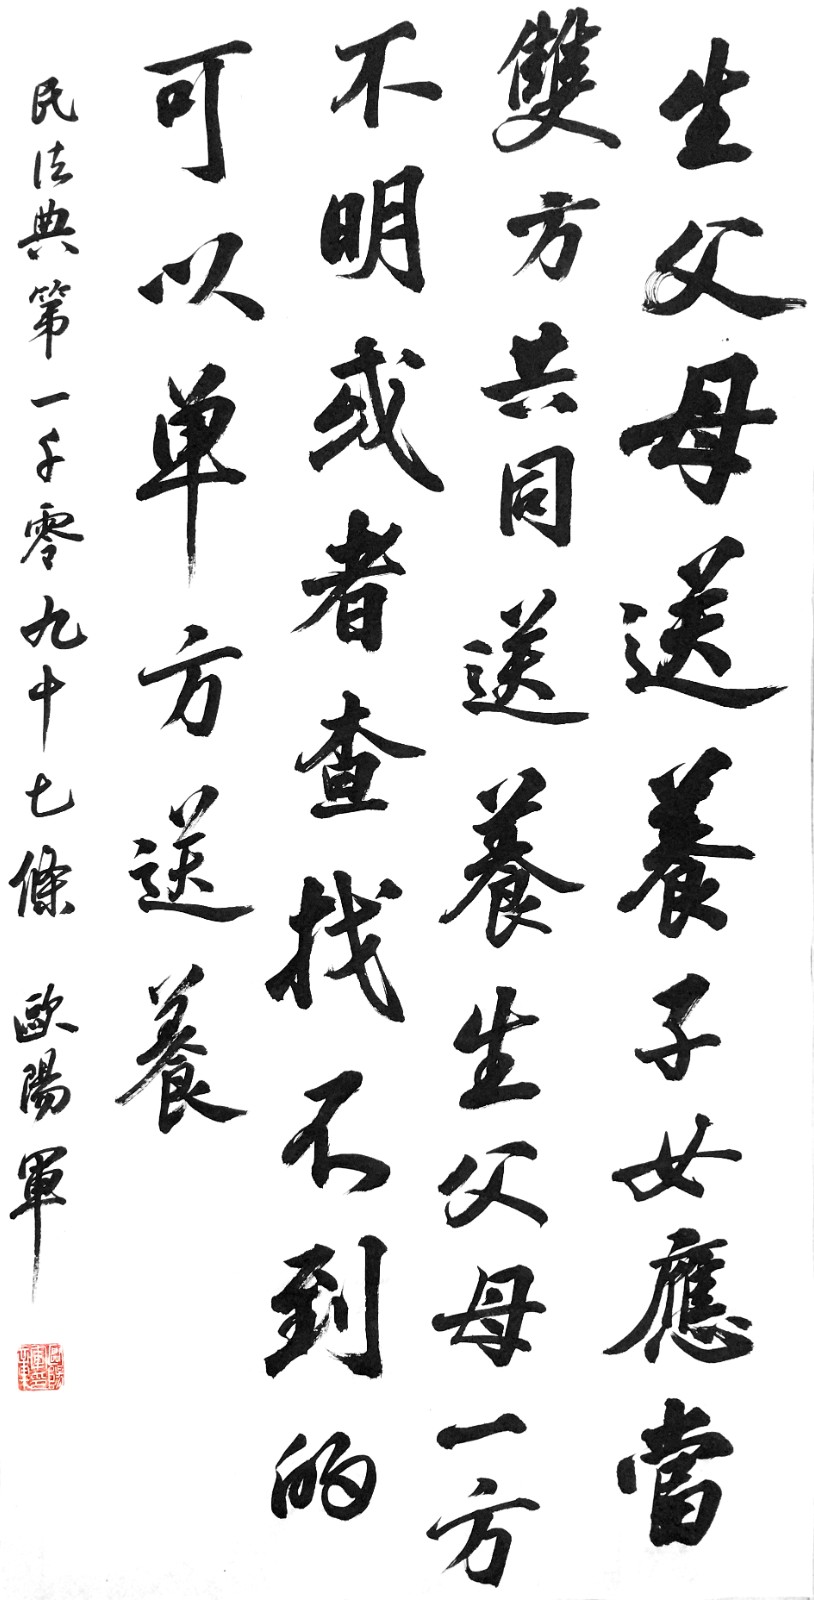 生父母送養子女應當
雙方共同送養生父母一方
不明或者查找不到的
可以单方送養
民法典第一千零九十七條 歐陽軍